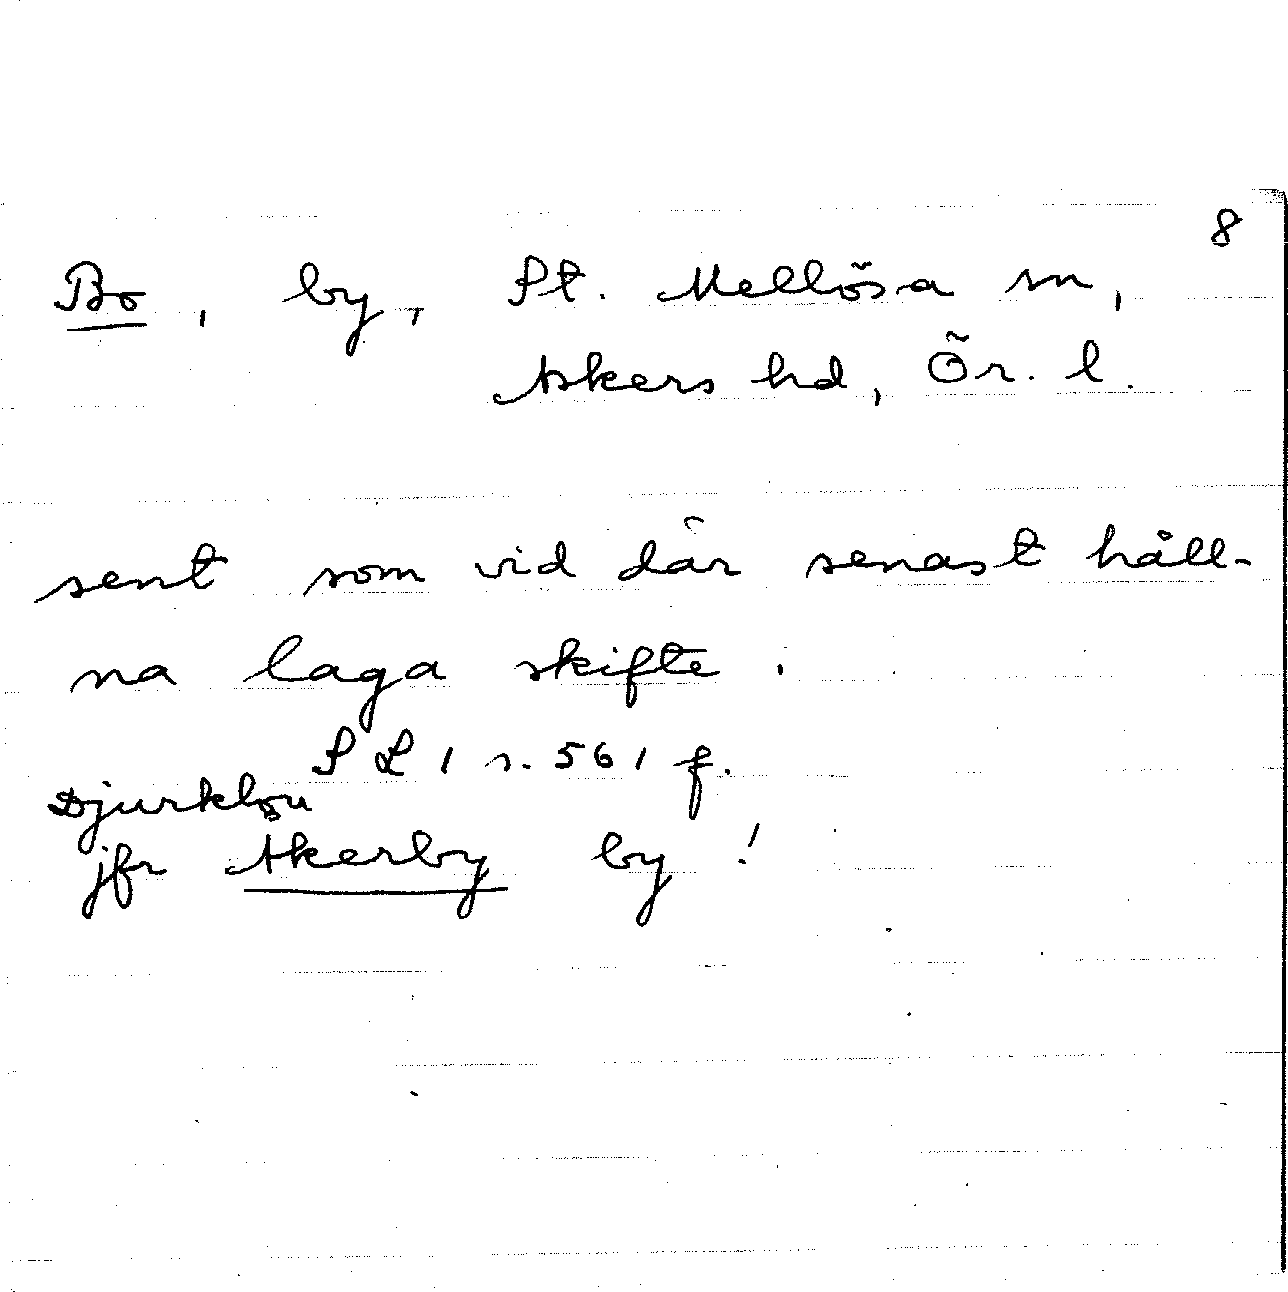 8
Bo, by, St. Mellösa sn,
Askers hd, Ör. l.
sent som vid där senast håll-
na laga skifte.
SL 1 s. 561 f.
Djurklou
jfr Akerby by!